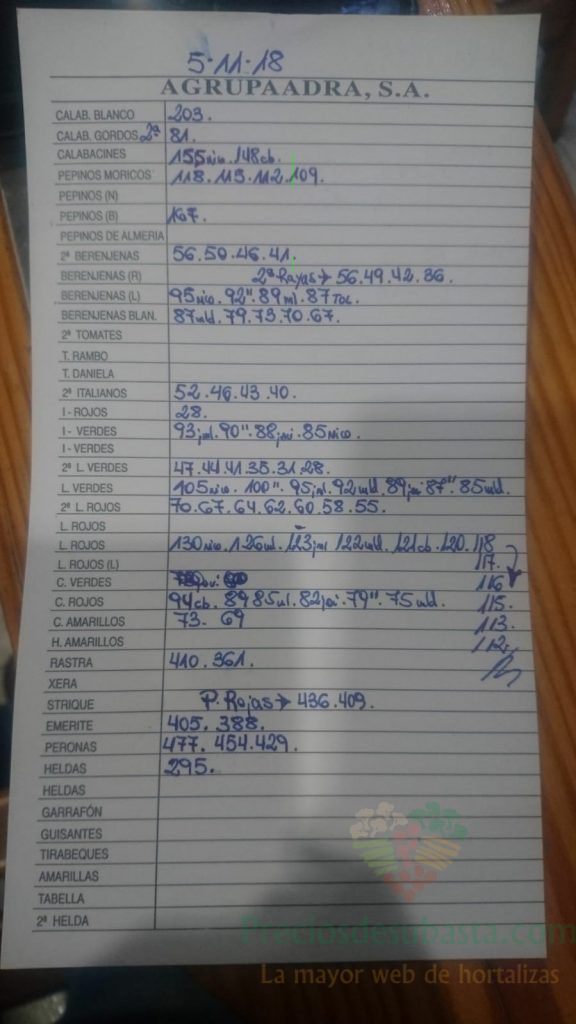 5-11-18
AGRUPAADRA, S.A.
CALAB. BLANCO 203.
CALAB. GORDOS 2ª 81.
CALABACINES 155nico. 148cb.
PEPINOS MORICOS 118. 115. 112. 109.
PEPINOS (N)
PEPINOS (B) 107.
PEPINOS DE ALMERIA
2ª BERENJENAS 56.50.46.41.
BERENJENAS (R) 2ª Rayas → 56.49.42.36.
BERENJENAS (L) 95nico. 92". 89ml. 87Toc.
BERENJENAS BLAN. 87uld. 79.73.70.67.
2ª TOMATES
T. RAMBO
T. DANIELA
2ª ITALIANOS 52.46.43.40.
I - ROJOS 28.
I - VERDES 93jml. 90". 88joi. 85Nico.
I - VERDES
2ª L. VERDES 47.44.41.35.31.28.
L. VERDES 105nico. 100". 95jml. 92uld. 89joi 87". 85uld.
2ª L. ROJOS 70.67.64.62.60.58.55.
L. ROJOS
L. ROJOS 130nico. 126ul. 123jml 122uld. 121cb. 120. 118
L. ROJOS (L) 117.
C. VERDES 116
C. ROJOS 94cb. 89 85ul. 82joi. 79". 75uld. 115.
C. AMARILLOS 73. 69 113.
H. AMARILLOS 112.
RASTRA 410. 361.
XERA
STRIQUE P. Rojas → 436.409.
EMERITE 405. 388.
PERONAS 477. 454.429.
HELDAS 295.
HELDAS
GARRAFÓN
GUISANTES
TIRABEQUES
AMARILLAS
TABELLA
2ª HELDA
Preciosdesubasta.com
La mayor web de hortalizas